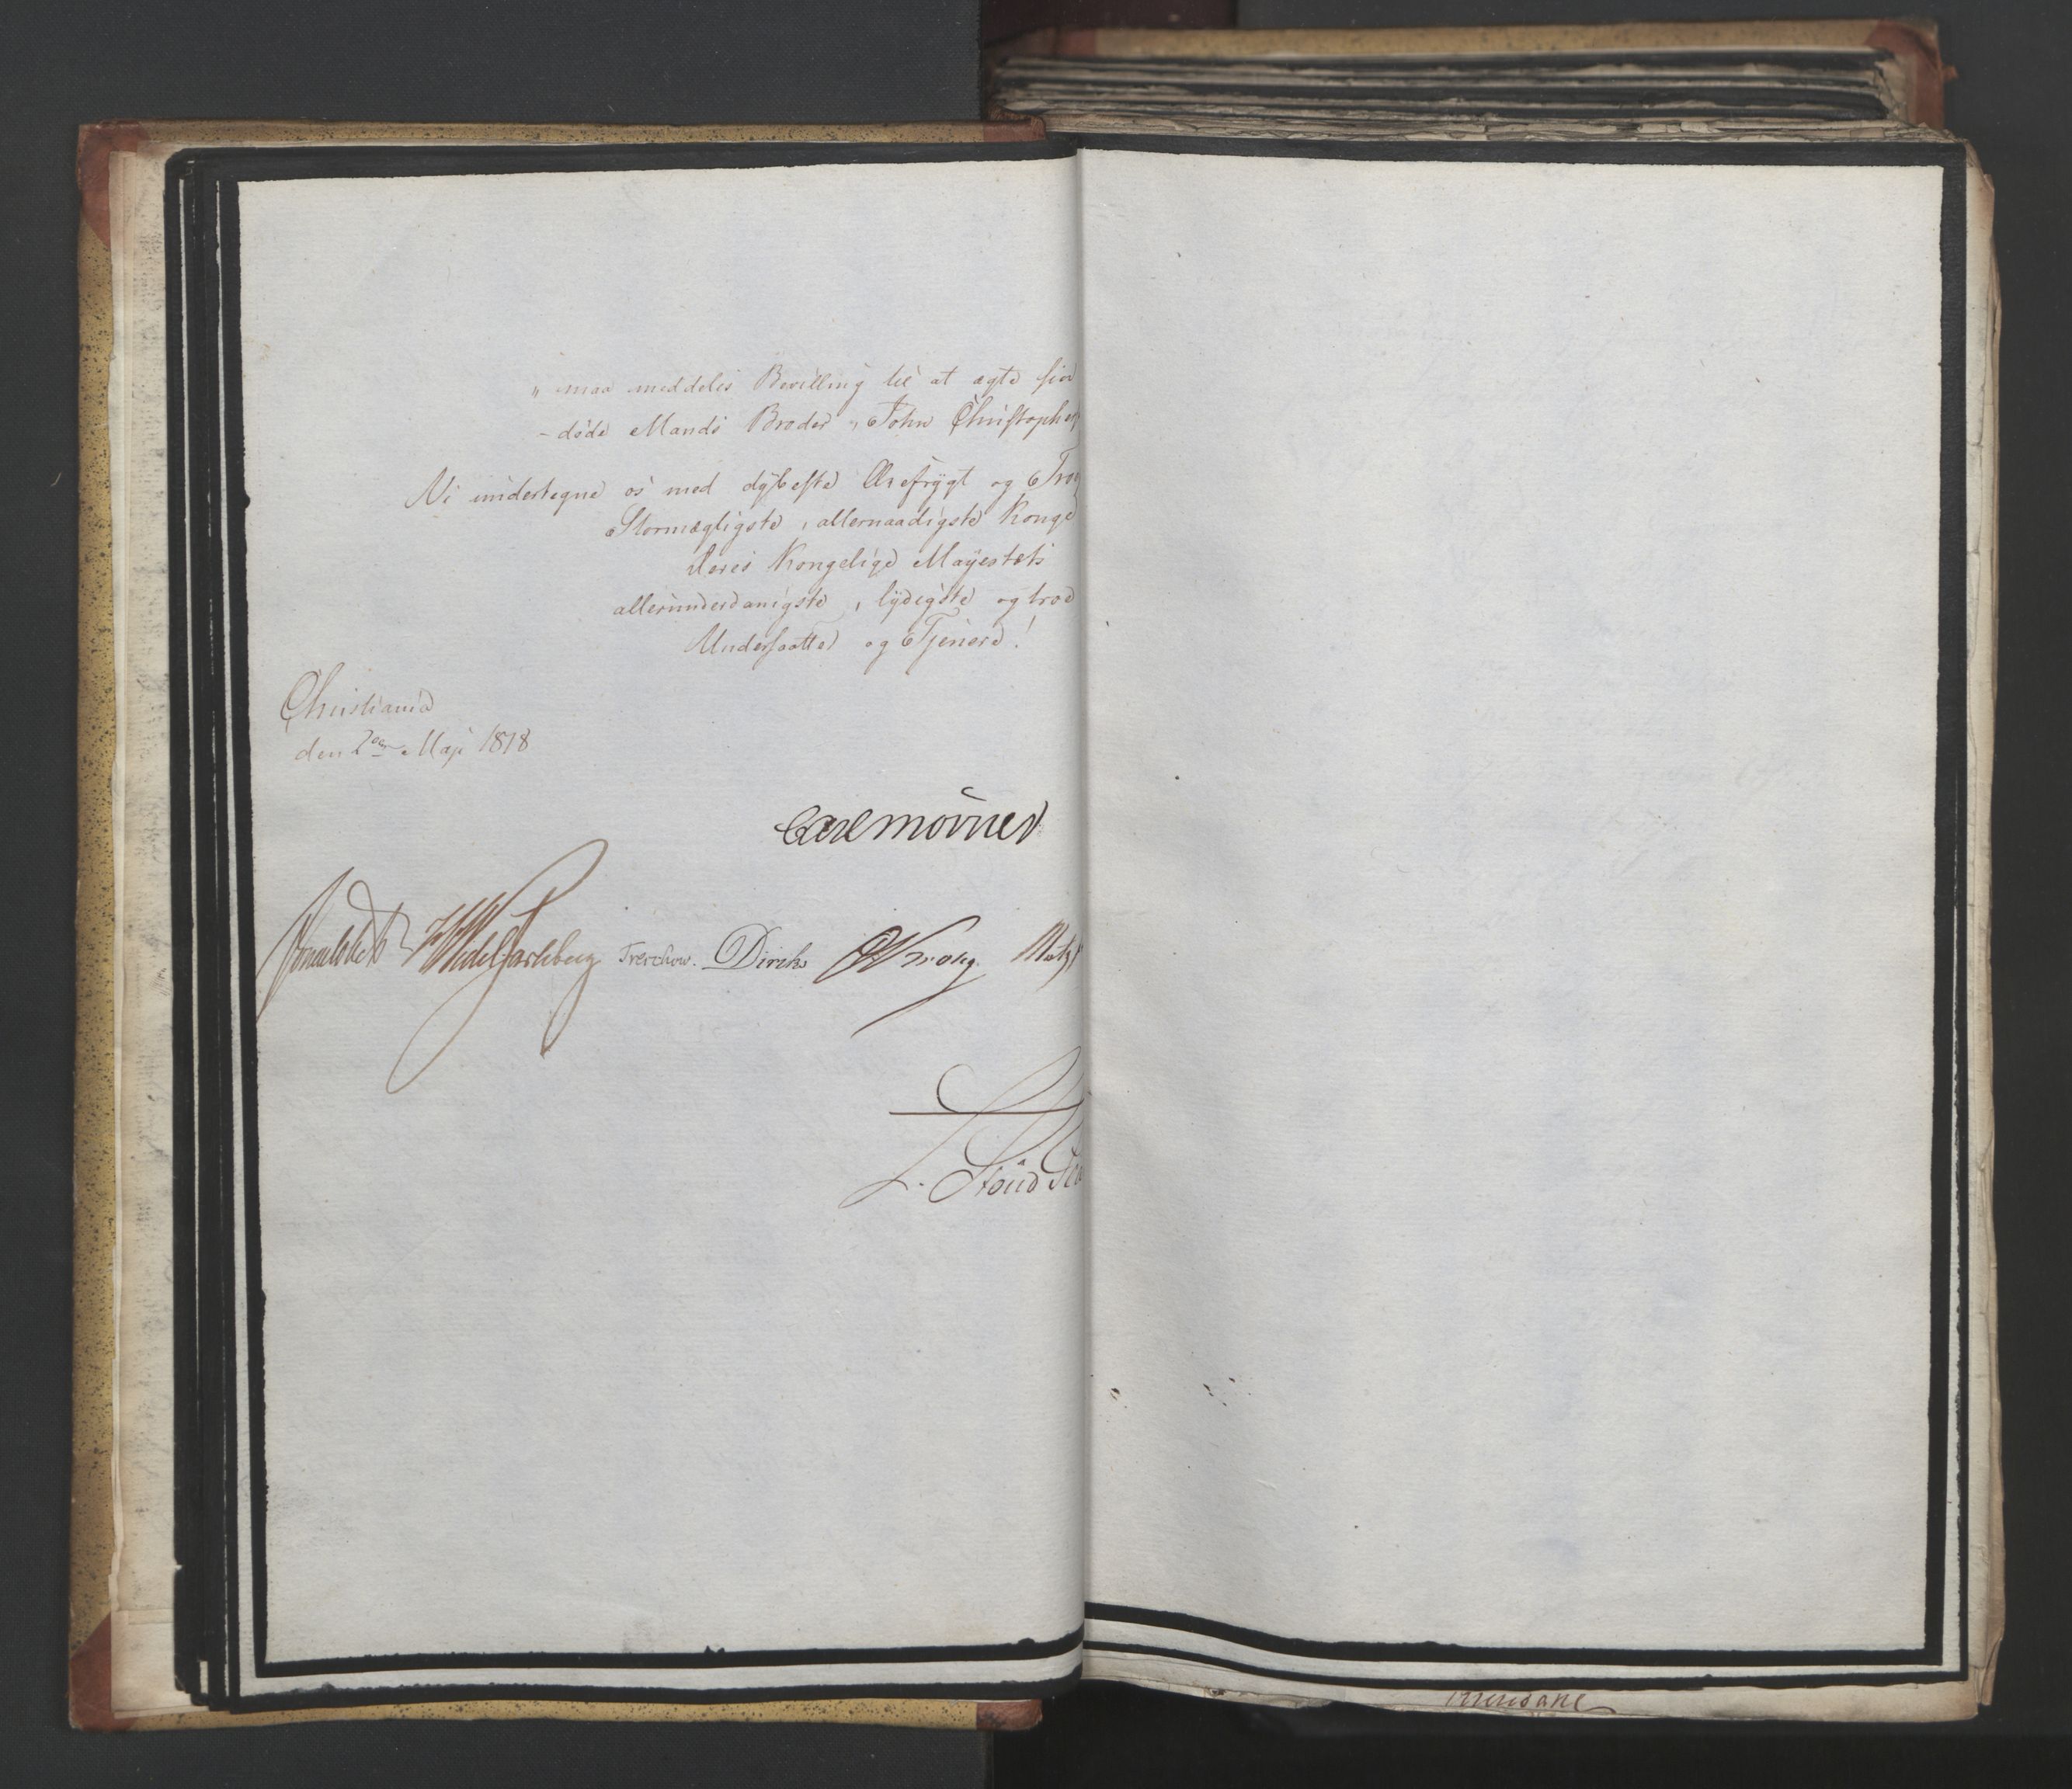 „ maa meddeles Bevilling til at ægte sin
- døde Mands Broder, John Christophers
Vi undertegne os med dybeste Ærefrygt og Tro
Stormægtigste, allernaadigste Konge
Deres Kongelige Mayestæts
allerunderdanigste, lydigste og troe
Undersaatter og Tjenere!
Christiania
den 2den Maji 1818
Carl Mörner
Sommerhielm HWedel Jarlsberg Treschow. Diriks CKrohg. Motzf
L. Stoud Pla